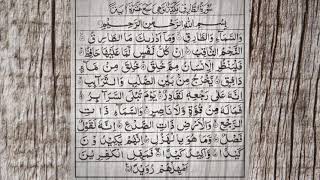 سُوْرَةُ الطَّارِقِ مَكِّيَّةٌ وَهِيَ سَبْعَ عَشْرَةَ اٰيَةً
بِسْمِ اللهِ الرَّحْمٰنِ الرَّحِيْمِ
وَالسَّمَآءِ وَالطَّارِقِ ۝ وَمَآ اَدْرٰىكَ مَا الطَّارِقُ ۝
النَّجْمُ الثَّاقِبُ ۝ اِنْ كُلُّ نَفْسٍ لَّمَّا عَلَيْهَا حَافِظٌ ۝
فَلْيَنْظُرِ الْاِنْسَانُ مِمَّ خُلِقَ ۝ خُلِقَ مِنْ مَّآءٍ
دَافِقٍ ۝ يَّخْرُجُ مِنْۢ بَيْنِ الصُّلْبِ وَالتَّرَآئِبِ ۝
اِنَّهٗ عَلٰى رَجْعِهٖ لَقَادِرٌ ۝ يَوْمَ تُبْلَى السَّرَآئِرُ ۝
فَمَا لَهٗ مِنْ قُوَّةٍ وَّلَا نَاصِرٍ ۝ وَالسَّمَآءِ ذَاتِ
الرَّجْعِ ۝ وَالْاَرْضِ ذَاتِ الصَّدْعِ ۝ اِنَّهٗ لَقَوْلٌ
فَصْلٌ ۝ وَّمَا هُوَ بِالْهَزْلِ ۝ اِنَّهُمْ يَكِيْدُوْنَ
كَيْدًا ۝ وَّاَكِيْدُ كَيْدًا ۝ فَمَهِّلِ الْكٰفِرِيْنَ
اَمْهِلْهُمْ رُوَيْدًا ۝